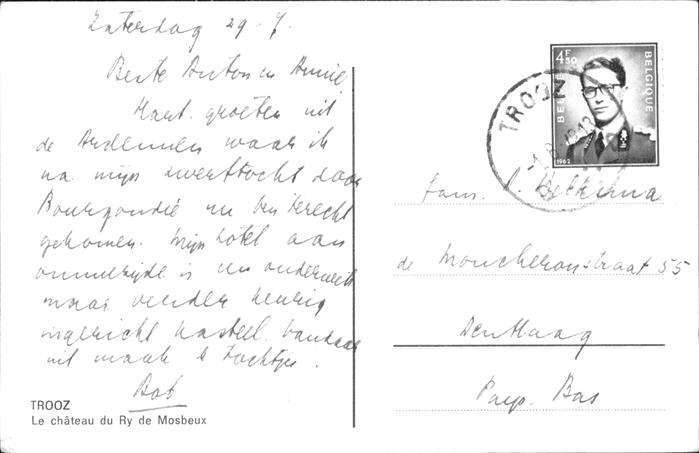 Zaterdag 29-7.
Beste Anton en Annie
Hart. groeten uit
de Ardennen waar ik
na mijn zwerftocht door
Bourgondië nu ben terecht
gekomen. Mijn hotel aan
ommezijde is een
maar verder keurig
ingericht kasteel. Vandaar
uit maak ik tochtjes.
Bob
TROOZ
Le château du Ry de Mosbeux
4F50
BELGIE
BELGIQUE
1962
TROOZ
Fam.
de Moucheronstraat 55
Den Haag
Pays-Bas